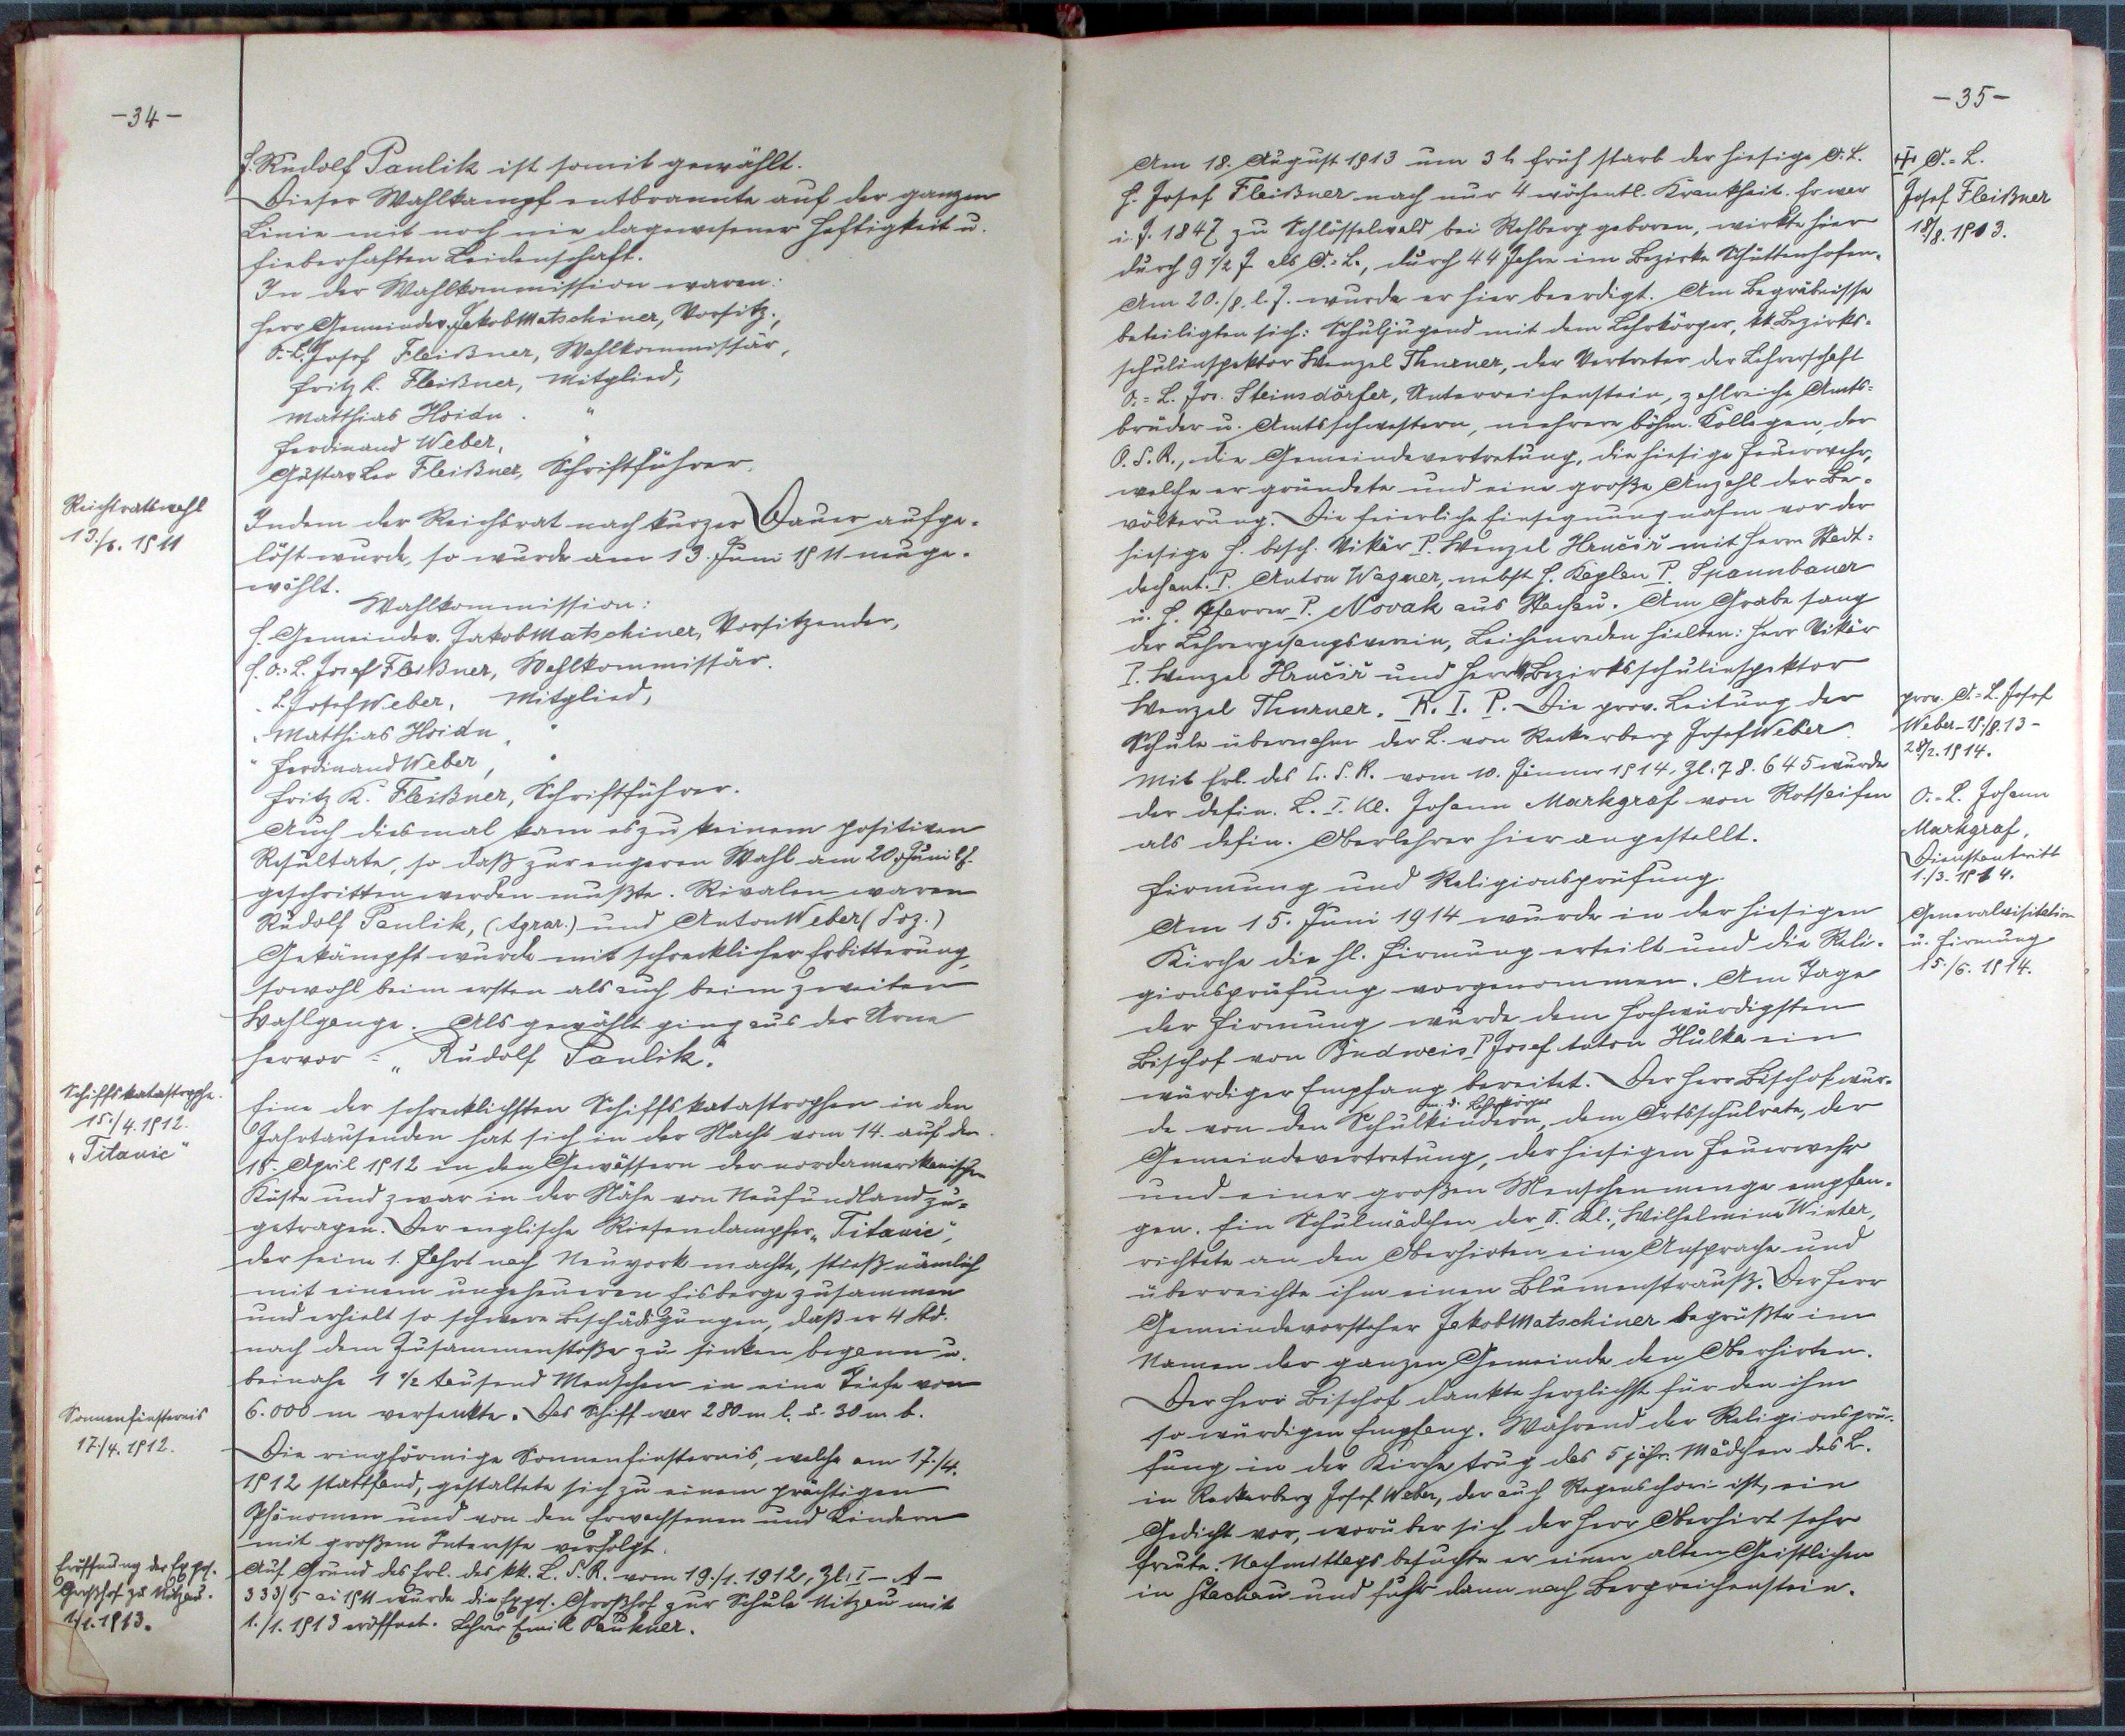 -34-
H. Rudolf Paulik ist somit gewählt.
Dieser Wahlkampf entbrannte auf der ganzen
Linie mit noch nie dagewesener Heftigkeit u.
fieberhaften Leidenschaft.
In der Wahlkommission waren:
Herr Gemeindev. Jakob Matschiner, Vorsitz.,
O.-L. Josef Fleißner, Wahlkommissär,
Fritz K. Fleißner, Mitglied,
Matthias Hoidn "
Ferdinand Weber, "
Gustav Leo Fleißner, Schriftführer.
Reichratswahl
13./6. 1911
Indem der Reichsrat nach kurzer Dauer aufge-
löst wurde, so wurde am 13. Juni 1911 neuge-
wählt.
Wahlkommission:
H. Gemeindev. Jakob Matschiner, Vorsitzender,
H. O.-L. Josef Fleißner, Wahlkommissär.
" L. Josef Weber, Mitglied,
" Matthias Hoidn, "
" Ferdinand Weber, "
Fritz K. Fleißner, Schriftführer.
Auch diesmal kam es zu keinem positiven
Resultate, so daß zur engeren Wahl am 20. Juni l. J.
geschritten werden mußte. Rivalen waren
Rudolf Paulik, (Agrar.) und Anton Weber (Soz.)
Gekämpft wurde mit schrecklicher Erbitterung,
sowohl beim ersten als auch beim zweiten
Wahlgange. Als gewählt ging aus der Urne
hervor: „Rudolf Paulik."
Schiffskatastrophe.
15./4. 1912.
„Titanic"
Eine der schrecklichsten Schiffskatastrophen in den
Jahrtausenden hat sich in der Nacht vom 14. auf den
15. April 1912 in den Gewässern der nordamerikanischen
Küste und zwar in der Nähe von Neufundland zu-
getragen. Der englische Riesendampfer „Titanic",
der seine 1. Fahrt nach Neuyork machte, stieß nämlich
mit einem ungeheueren Eisberge zusammen
und erhielt so schwere Beschädigungen, daß er 4 Std.
nach dem Zusammenstoße zu sinken begann u.
beinahe 1 ½ tausend Menschen in eine Tiefe von
6.000 m versenkte. Das Schiff war 280 m l. u. 30 m b.
Sonnenfinsternis
17./4. 1912.
Die ringförmige Sonnenfinsternis, welche am 17./4.
1912 stattfand, gestaltete sich zu einem prächtigen
Phänomen und von den Erwachsenen und Kindern
mit großem Interesse verfolgt.
Eröffnung der Expos.
Großhof zu Nitzau.
1./1. 1913.
Auf Grund des Erl. des kk. L. S. R. vom 19./1. 1912, Zl: I - A -
333/5 ai 1911 wurde die Expos. Großhof zur Schule Nitzau mit
1./1. 1913 eröffnet. Lehrer Emil Paukner.
-35-
Am 18. August 1913 um 3 h früh starb der hiesige O. L.
H. Josef Fleißner nach nur 4 wöchentl. Krankheit. Er war
i. J. 1847 zu Schlösselwald bei Rehberg geboren, wirkte hier
durch 9 ½ J. als O.-L., durch 44 Jahre im Bezirke Schüttenhofen.
Am 20./8. l. J. wurde er hier beerdigt. Am Begräbnisse
beteiligten sich: Schuljugend mit dem Lehrkörper, kk Bezirks-
schulinspektor Wenzel Thurner, der Vertreter der Lehrerschaft
O.-L. Jos. Steinsdörfer, Unterreichenstein, zahlreiche Amts-
brüder u. Amtsschwestern, mehrere böhm. Kollegen, der
O. S. R., die Gemeindevertretung, die hiesige Feuerwehr,
welche er gründete und eine große Anzahl der Be-
völkerung. Die feierliche Einsegnung nahm vor der
hiesige H. bisch. Vikär P. Wenzel Hručiř mit Herrn Stadt-
dechant. P. Anton Wagner, nebst H. Kaplan P. Spannbauer
u. H. Pfarrer P. Novak aus Stachau. Am Grabe sang
der Lehrergesangsverein, Leichenreden hielten: Herr Vikär
P. Wenzel Hručiř und Herr kk Bezirksschulinspektor
Wenzel Thurner. R. I. P. Die prov. Leitung der
Schule übernahm der L. von Reckerberg Josef Weber.
Mit Erl. des L. S. R. vom 10. Jänner 1914, Zl: 78.645 wurde
der defin. L. I. Kl. Johann Markgraf von Rotseifen
als defin. Oberlehrer hier angestellt.
Firmung und Religionsprüfung.
Am 15. Juni 1914 wurde in der hiesigen
Kirche die hl. Firmung erteilt und die Reli-
gionsprüfung vorgenommen. Am Tage
der Firmung wurde dem hochwürdigsten
Bischof von Budweis P. Josef Anton Hůlka ein
würdiger Empfang bereitet. Der Herr Bischof wur-
de von den Schulkindern, um. d. Lehrkörper dem Ortsschulrate, der
Gemeindevertretung, der hiesigen Feuerwehr
und einer großen Menschenmenge empfan-
gen. Ein Schulmädchen der II. Kl., Wilhelmine Winter,
richtete an den Oberhirten eine Ansprache und
überreichte ihm einen Blumenstrauß. Der Herr
Gemeindevorsteher Jakob Matschiner begrüßte im
Namen der ganzen Gemeinde den Oberhirten.
Der Herr Bischof dankte herzlichst für den ihm
so würdigen Empfang. Während der Religionsprü-
fung in der Kirche trug das 5 jähr. Mädchen des L.
in Reckerberg Josef Weber, der auch Regenschori ist, ein
Gedicht vor, worüber sich der Herr Oberhirt sehr
freute. Nachmittags besuchte er einen alten Geistlichen
in Stachau und fuhr dann nach Bergreichenstein.
O.-L.
Josef Fleißner
18/8. 1913.
prov. O.-L. Josef
Weber - 19./8. 13 -
28/2. 1914.
O.-L. Johann
Markgraf,
Dienstantritt
1./3. 1914.
Generalvisitation
u. Firmung
15./6. 1914.